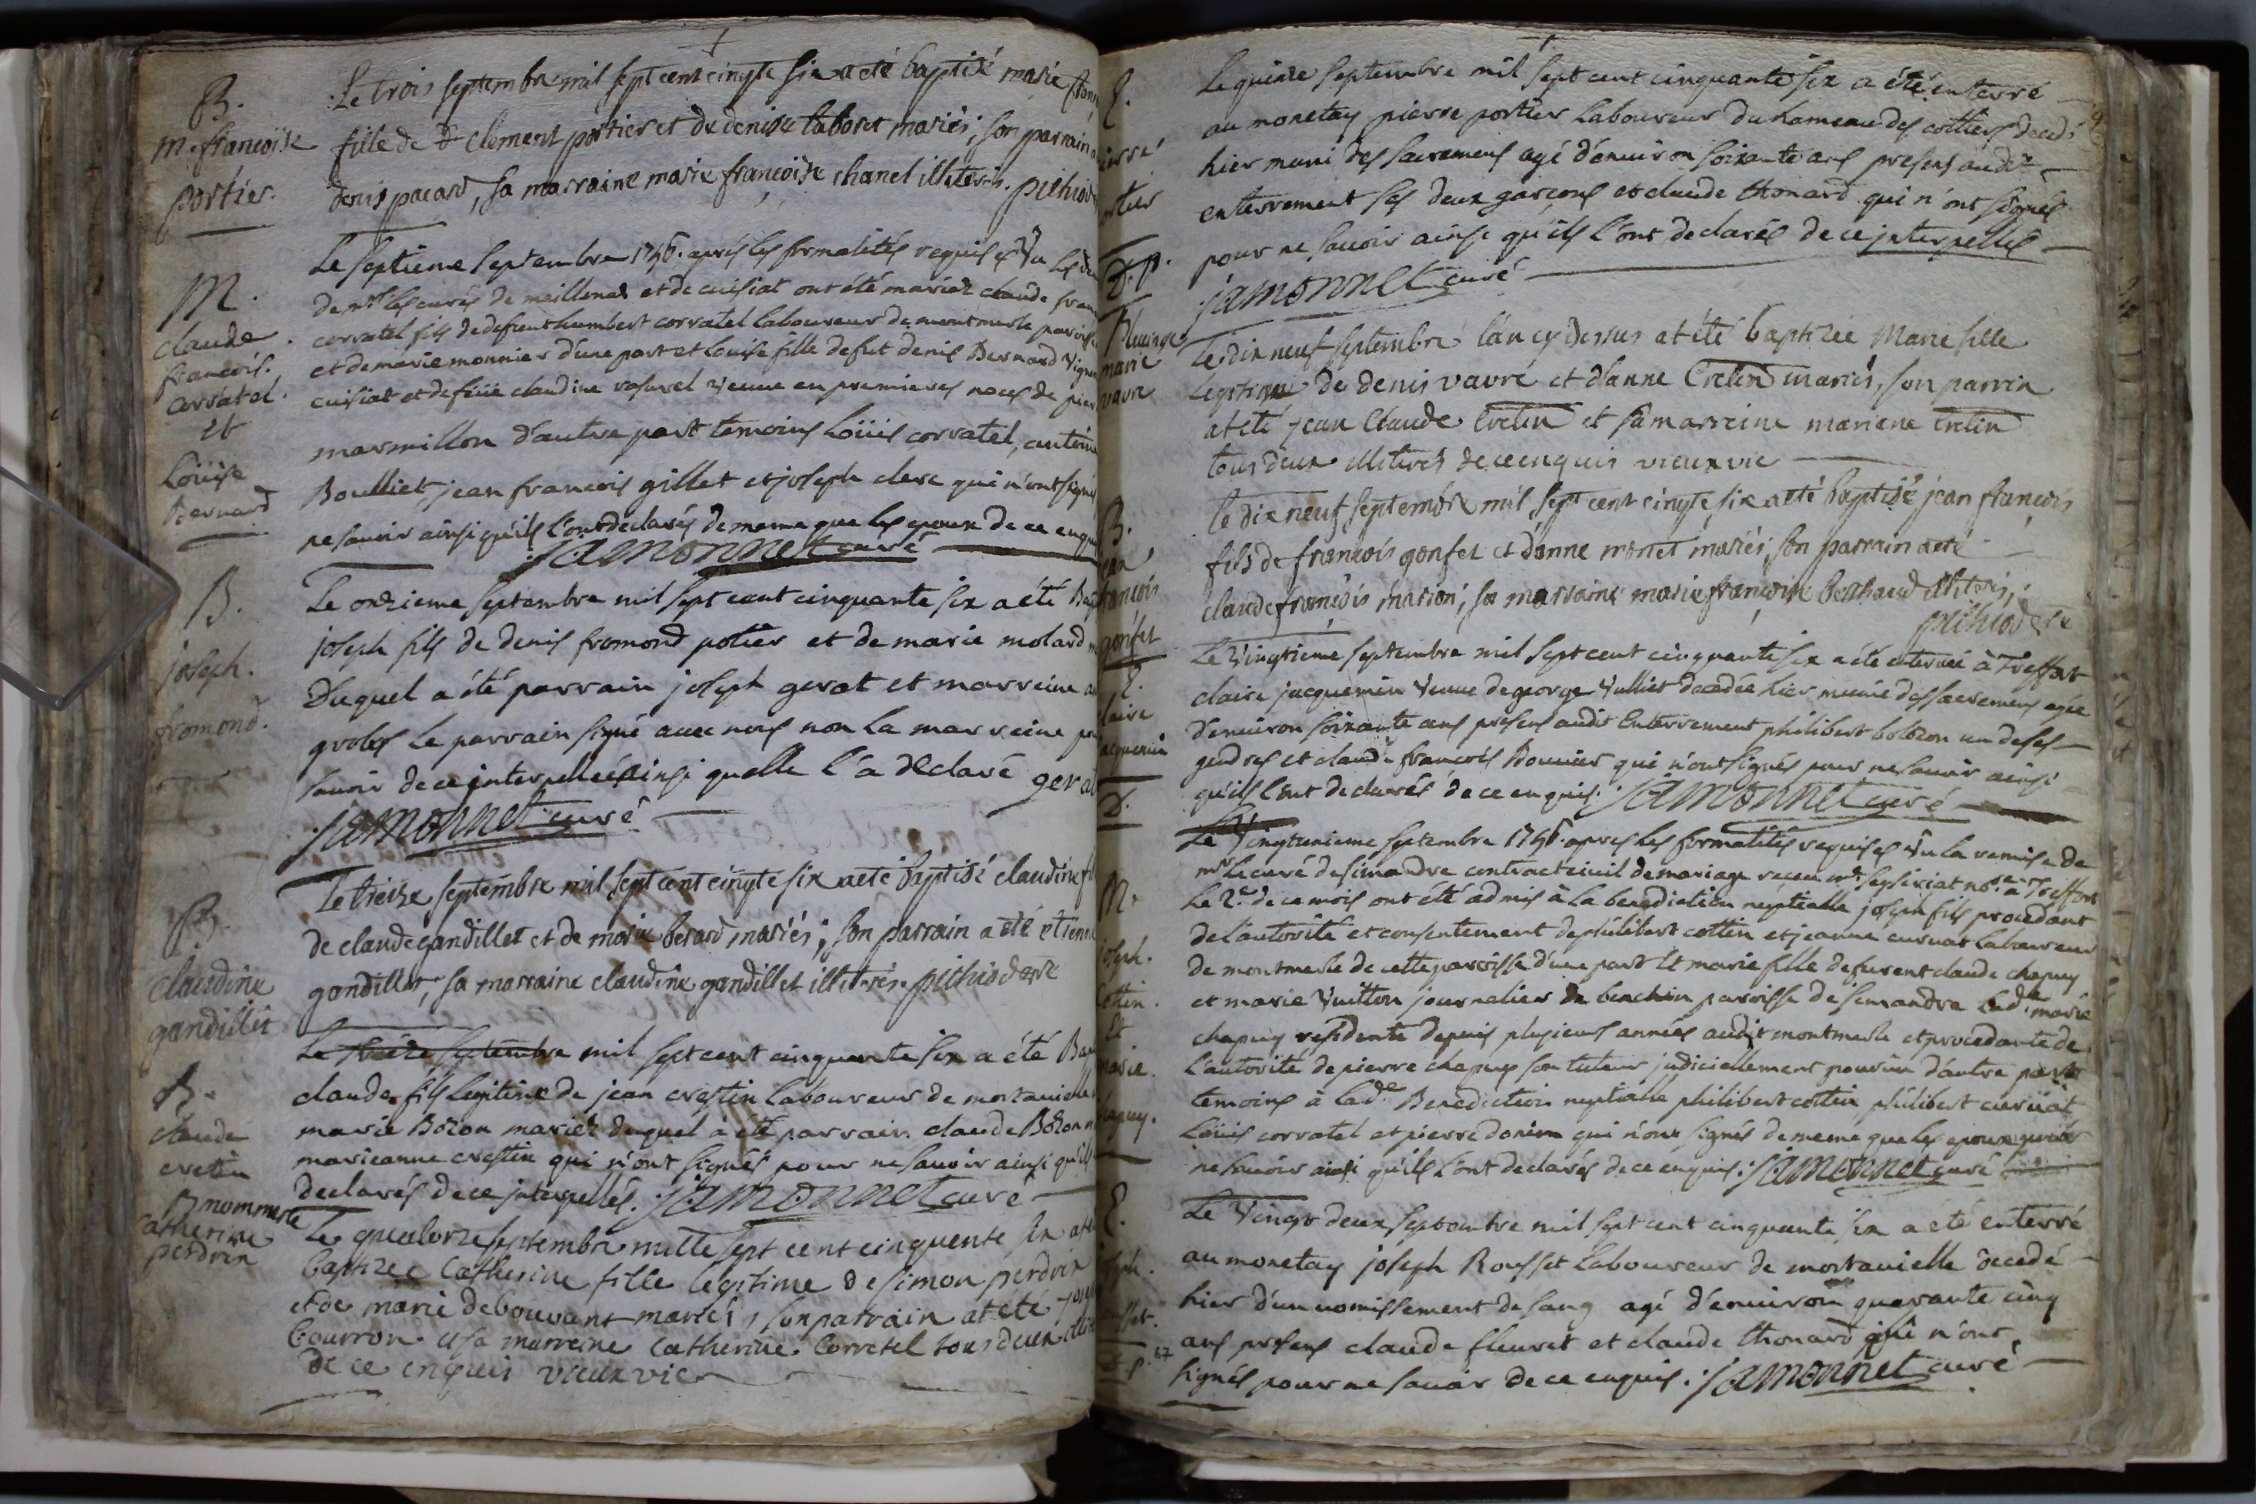 B.
m. francoise
portier.
Le trois septembre mil sept cent cinqte six a eté baptisé marie
fille de Clement portier et de denise taboret mariés; son parrain
denis pacard, sa marraine marie françoise chanel illiterés. pithiod
M.
claude
francois.
corratel.
Et
Loüise
Bernard
Le septieme septembre 1756. après les formalités requises Vu les
de mrs les curés de meillonas et de cuisiat ont été mariés claude
corratel fils de defunt humbert corratel laboureur de montmerle paroisse
et de marie monnier d'une part et Louise fille de fut denis Bernard
cuisiat et de feüe claudine rosurel veuve en premieres noces de
marmillon d'autre part temoins Loüis corratel, antoine
Boulliet, jean francois gillet et joseph clerc qui n'ont signés
ne savoir ainsi qu'ils l'ont declarés de meme que les epoux de ce enquis
jamonnet curé
B.
joseph.
fromond.
Le onzieme septembre mil sept cent cinquante six a été
joseph fils de denis fromond potier et de marie molard
Duquel a été parrain joseph gerat et marreine
groles Le parrain signé avec nous non La marreine
savoir de ce interpellée ainsi quelle l'a declaré gerat
jamonnet curé
B.
claudine
gandillet
Le treize septembre mil sept cent cinqte six a eté baptisé claudine
de claude gandillet et de marie berard mariés; son parrain a eté etienne
gandillet, sa marraine claudine gandillet illiterés. pithiod
B.
claude
cretin
Le treize septembre mil sept cent cinquante six a été
claude fils legitime de jean crestin laboureur de mortavielle
marie Bozon mariés duquel a été parrain claude Bozon
marieanne crestin qui n'ont signés pour ne savoir ainsi qu'ils
declarés de ce interpellés. jamonnet curé
B
catherine
perdrix
Le quatorze septembre mille sept cent cinquente six
baptizee Catherine fille legitime de simon perdrix
et de marie debouvant mariés, son parrain at eté
bourron et sa marreine catherine Corretel tous deux
de ce enquis vieux vic
E.
Le quinze septembre mil sept cent cinquante six a été enterré
au monetay pierre portier Laboureur du hameau des cottiers
hier muni des sacremens agé d'environ soixante ans presens audt
enterrement ses deux garçons et claude thonard qui n'ont signés
pour ne savoir ainsi qu'ils l'ont declarés de ce interpellés
jamonnet curé
marie
vavre
Le dix neuf septembre l'an cy dessus at été baptizée Marie fille
Legitime de denis vavre et d'anne Cretin mariés, son parrin
at eté jean Claude Cretin et sa marreine mariene Cretin
tous deux illiterés de ce enquis vieux vic
B.
francois
gonfet
le dix neuf septembre mil sept cent cinqte six a eté baptisé jean françois
fils de francois gonfet et d'anne monet mariés; son parrain a eté
claude francois marion; sa marraine marie françoise berthaud illiterés;
pithiod
Le Vingtieme septembre mil sept cent cinquante six a été enterrée à Treffort
claire jacquemin veuve de george Vulliet decedée hier munie des sacremens agée
d'environ soixante ans presens audit Enterrement philibert bolozon un de ses
gendres et claude francois Bouvier qui n'ont signés pour ne savoir ainsi
qu'ils l'ont declarés de ce enquis. jamonnet curé
M.
Le Vingtunieme septembre 1756. apres les formalités requises Vu la remise de
mr Le curé de simandre contract civil de mariage receu à Treffort
Le 2e de ce mois ont été admis à la benediction nuptialle joseph fils procedant
de l'autorité et consentement de philibert cottin et jeanne curnat Laboureur
de montmerle de cette paroisse d'une part Et marie fille de furent claude chapuy
et marie Vuitton journalier de benchin paroisse de simandre Lade marie
chapuy residente depuis plusieurs années audit montmerle et procedante de
L'autorité de pierre chapuy son tuteur judiciellement pourvu d'autre part
temoins à lade Benediction nuptialle philibert cottin philibert curnat
Loüis corratel et pierre donin qui n'ont signés de meme que les epoux pour
ne savoir ainsi qu'ils l'ont declarés de ce enquis: jamonnet curé
E.
Le Vingt deux septembre mil sept cent cinquante six a été enterré
au monetay joseph Rousset Laboureur de mortavielle decedé
hier d'un vomissement de sang agé d'environ quarante cinq
ans presens claude fleuret et claude thonard qui n'ont
signés pour ne savoir de ce enquis. jamonnet curé